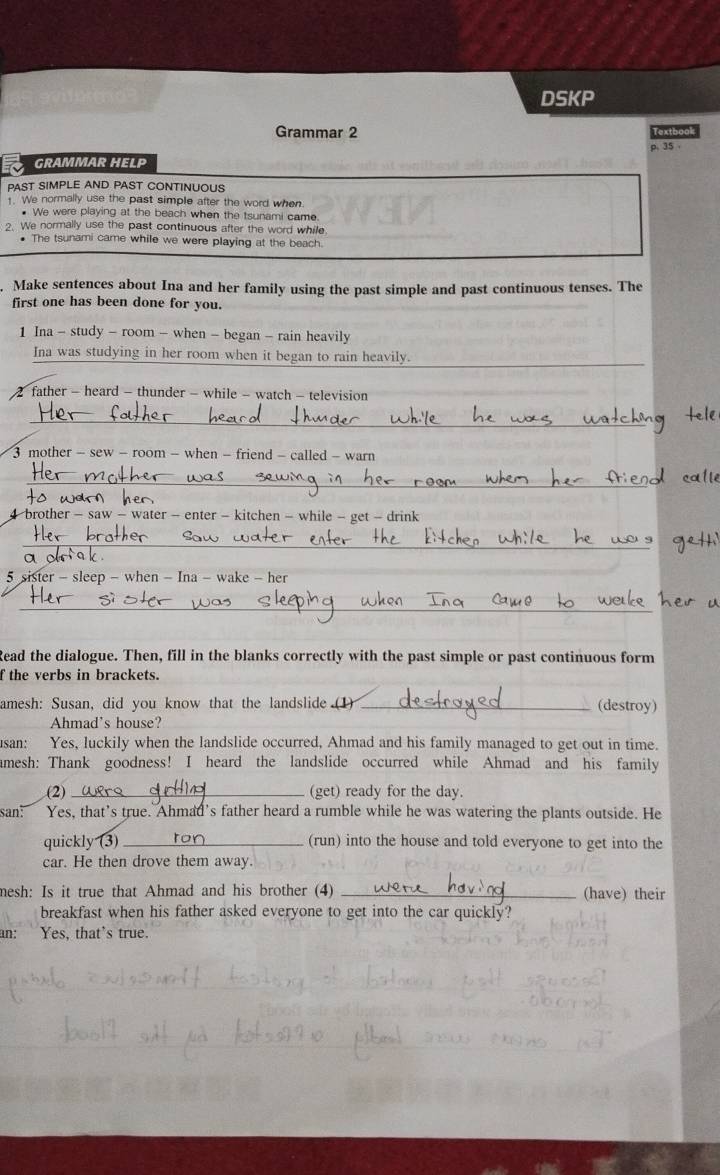 DSKP
Grammar 2
Textbook
p. 35
GRAMMAR HELP
PAST SIMPLE AND PAST CONTINUOUS
1. We normally use the past simple after the word when.
• We were playing at the beach when the tsunami came.
2. We normally use the past continuous after the word while.
• The tsunami came while we were playing at the beach.
. Make sentences about Ina and her family using the past simple and past continuous tenses. The
first one has been done for you.
1 Ina – study – room – when – began – rain heavily
Ina was studying in her room when it began to rain heavily.
2 father – heard – thunder – while – watch – television
Her father heard thunder while he was watching tele
3 mother – sew – room – when – friend – called – warn
Her mother was sewing in her room when her friend calle
to warn her.
4 brother – saw – water – enter – kitchen – while – get – drink
Her brother saw water enter the kitchen while he was getti
a drink.
5 sister – sleep – when – Ina – wake – her
Her sister was sleeping when Ina came to wake her u
Read the dialogue. Then, fill in the blanks correctly with the past simple or past continuous form
f the verbs in brackets.
amesh: Susan, did you know that the landslide (1) destroyed (destroy)
Ahmad's house?
usan: Yes, luckily when the landslide occurred, Ahmad and his family managed to get out in time.
amesh: Thank goodness! I heard the landslide occurred while Ahmad and his family
(2) were getting (get) ready for the day.
san: Yes, that's true. Ahmad's father heard a rumble while he was watering the plants outside. He
quickly (3) ran (run) into the house and told everyone to get into the
car. He then drove them away.
mesh: Is it true that Ahmad and his brother (4) were having (have) their
breakfast when his father asked everyone to get into the car quickly?
an: Yes, that's true.